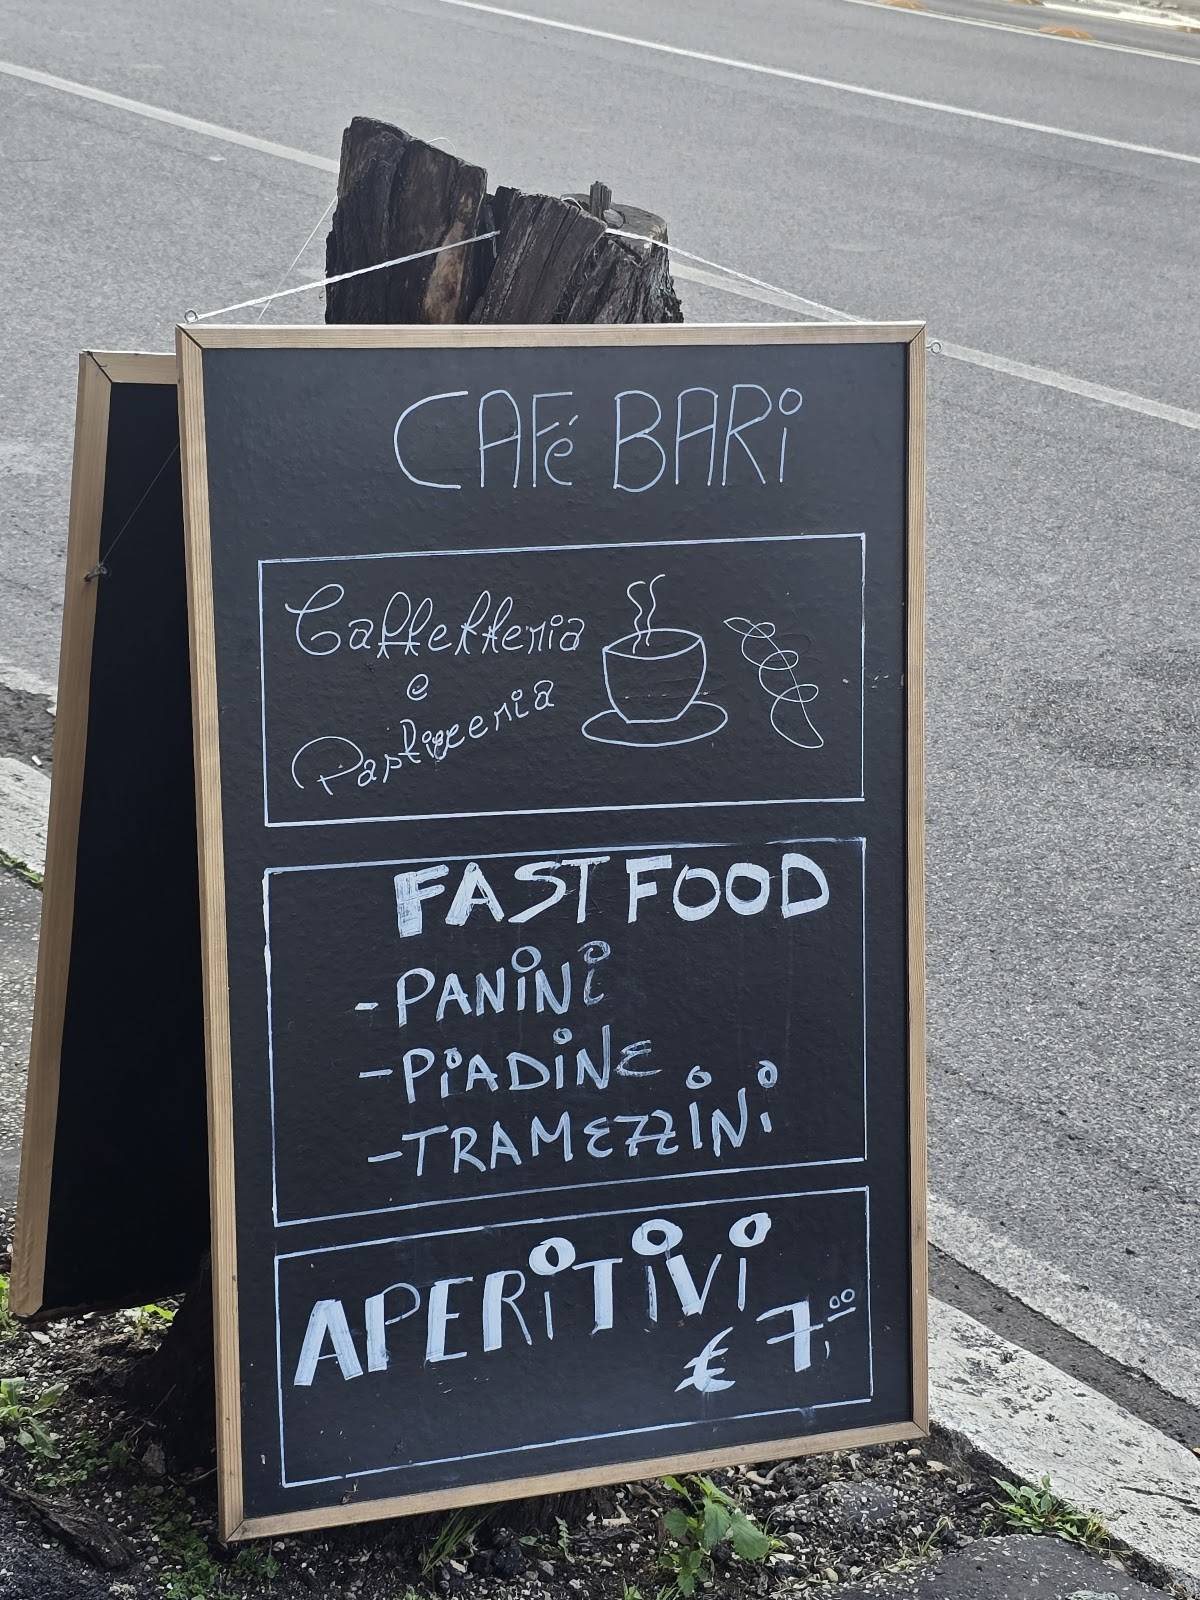 CAFé BARi
Caffetteria
e
Pasticceria
FAST FOOD
- PANiNi
- PiADiNE
- TRAMEZZiNi
APERiTiVi
€ 7,00